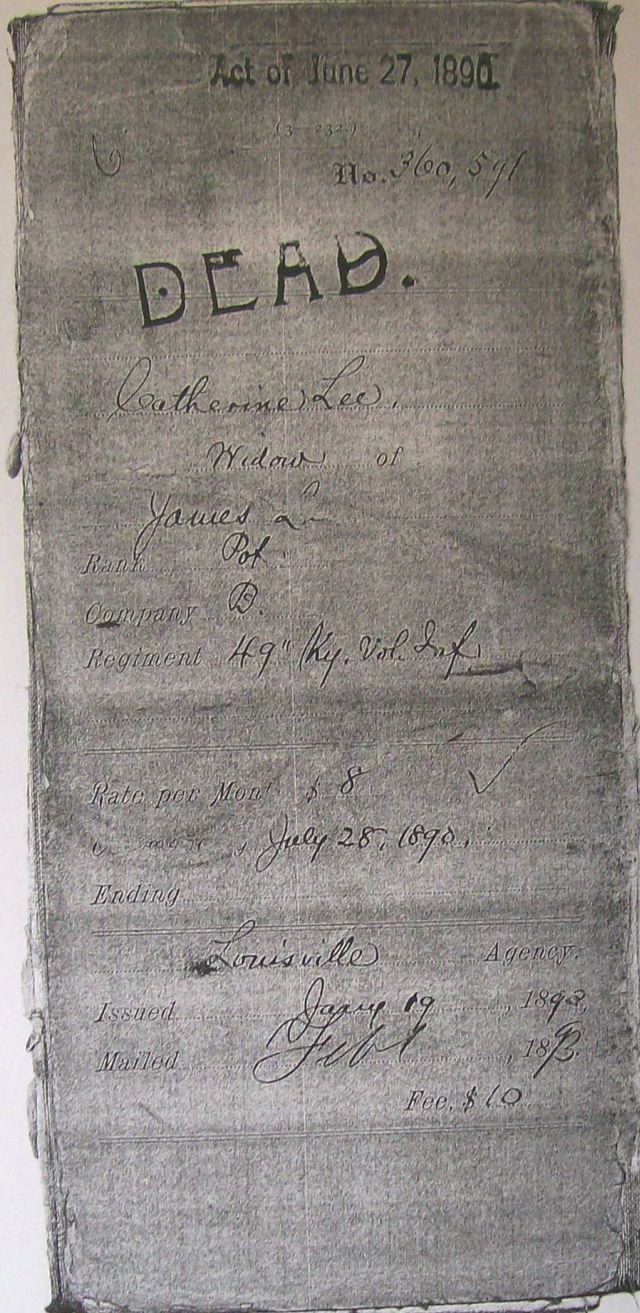 Act of June 27, 1890.
(3—232.)
No. 360,591
DEAD.
Catherine Lee,
Widow of
James L
Rank Pvt
Company B.
Regiment 49" Ky. Vol. Inf
Rate per Mont $ 8
July 28, 1890.
Ending
Louisville Agency.
Issued Jany 19, 1893,
Mailed Feb 1, 189
Fee, $10